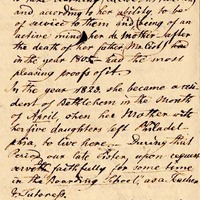 and according to her ability, to be
of service to them and being of an
active mind, her dr Mother, after
the death of her father, Mr
in the year 180 had the most
pleasing proofs of it.
In the year 1823, she became a resi-
dent of Bethlehem in the Month
of April, when her Mother with
her five daughters left Philadel-
phia, to live here. During that
Period our late Sister, upon request
served faithfully for some time
in the Boarding School, as a Teacher
& Tutoress.